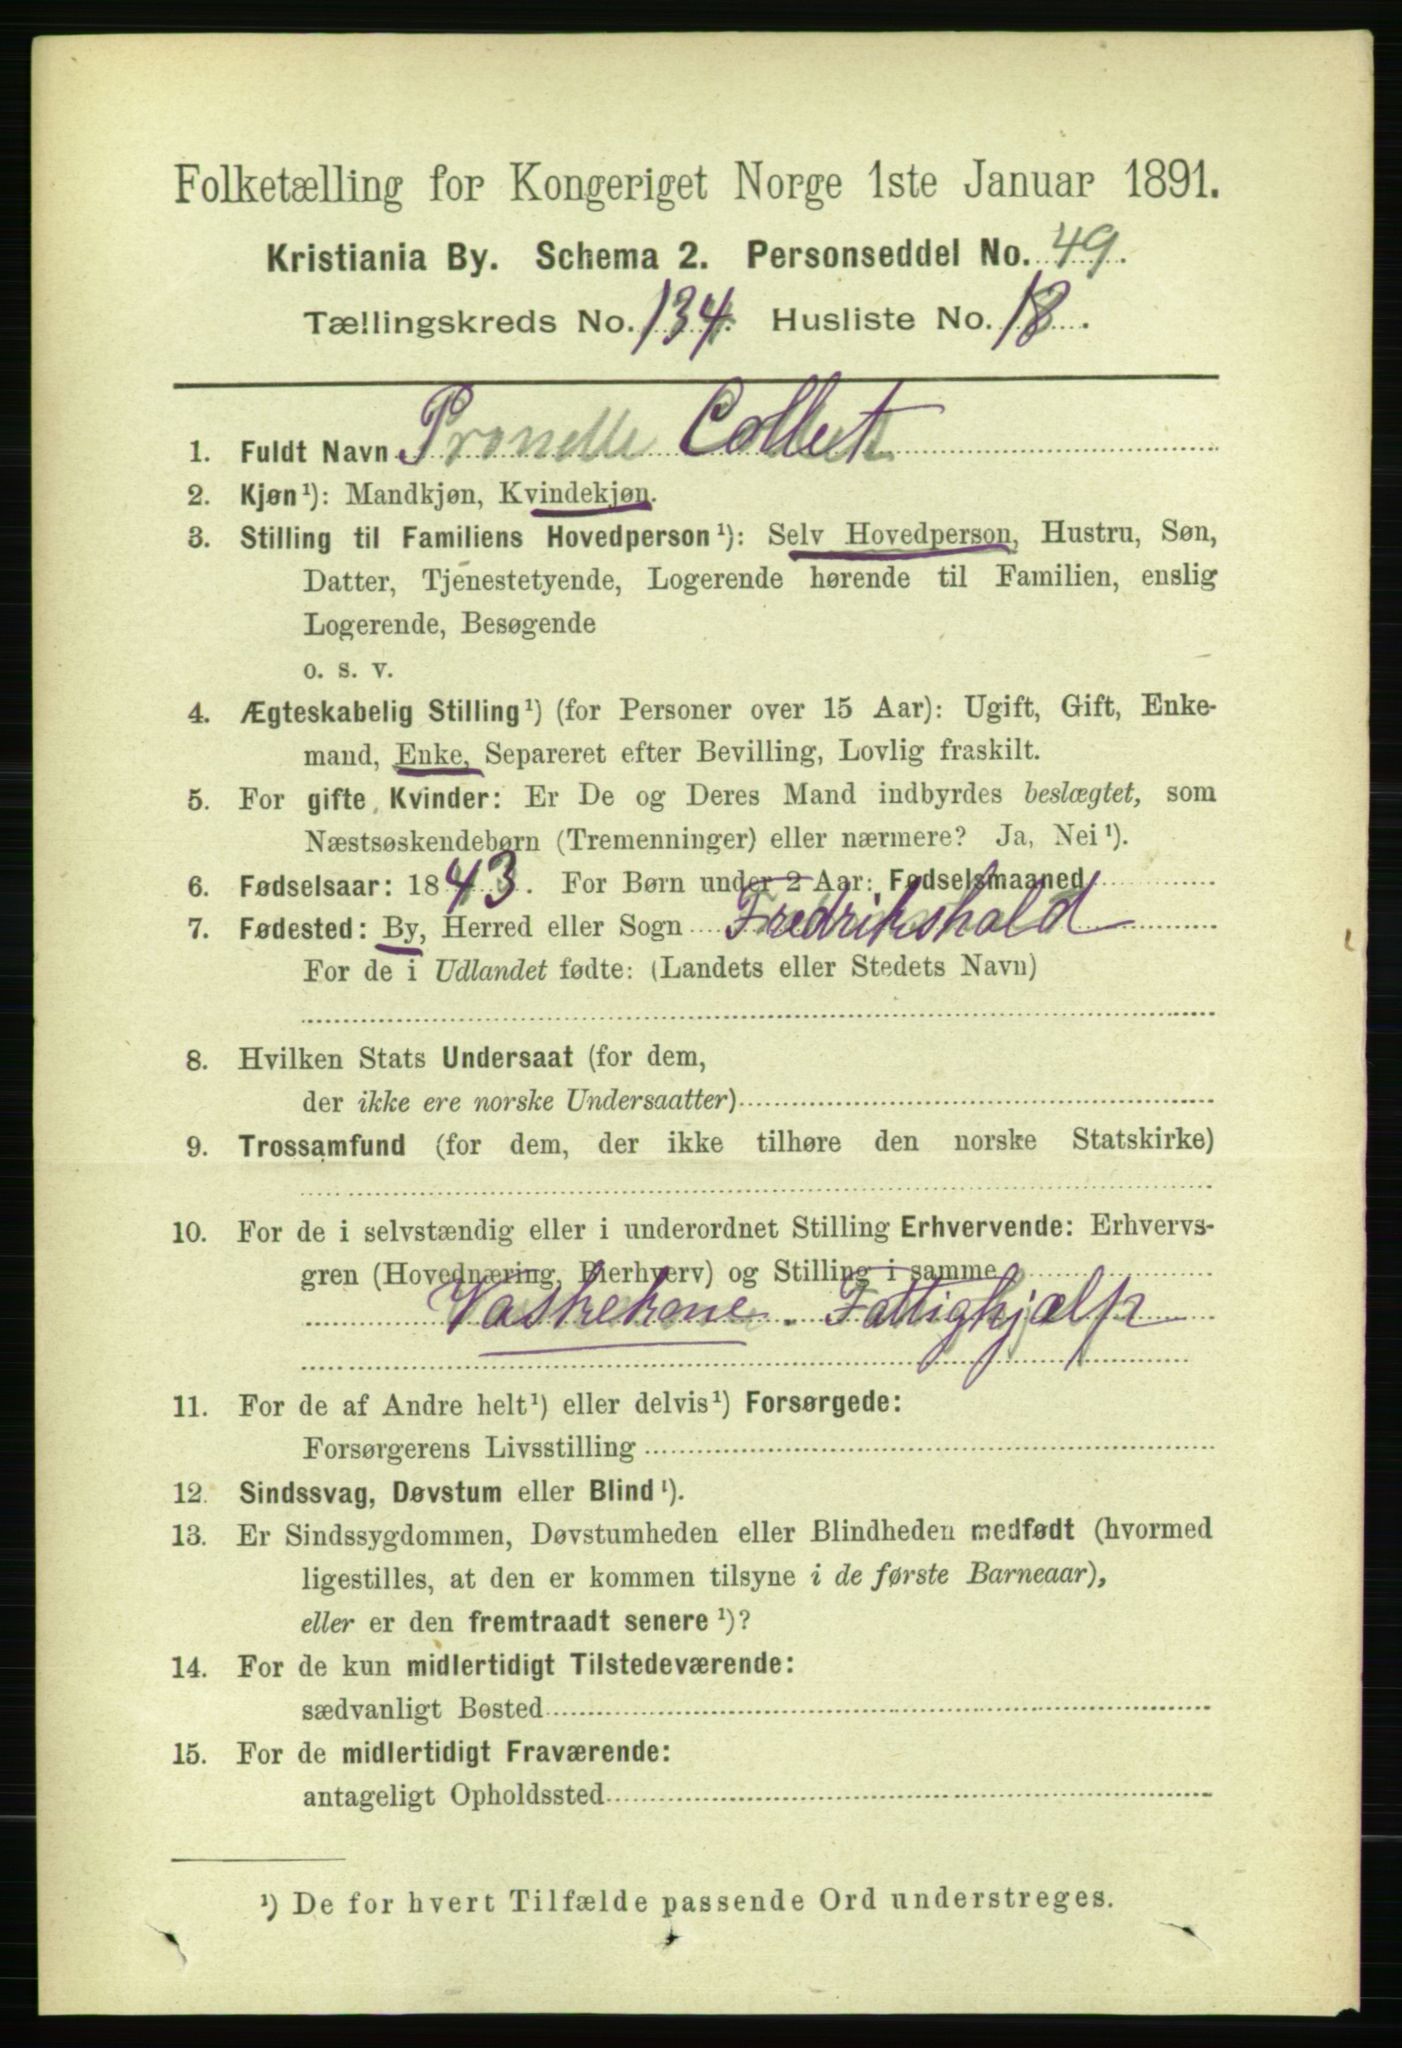 Folketælling for Kongeriget Norge 1ste Januar 1891.
Kristiania By. Schema 2. Personseddel No. 49.
Tællingskreds No. 134. Husliste No. 18.
1. Fuldt Navn Pronelle Collett
2. Kjøn¹): Mandkjøn, Kvindekjøn.
3. Stilling til Familiens Hovedperson¹): Selv Hovedperson, Hustru, Søn,
Datter, Tjenestetyende, Logerende hørende til Familien, enslig
Logerende, Besøgende
o. s. v.
4. Ægteskabelig Stilling¹) (for Personer over 15 Aar): Ugift, Gift, Enke-
mand, Enke, Separeret efter Bevilling, Lovlig fraskilt.
5. For gifte Kvinder: Er De og Deres Mand indbyrdes beslægtet, som
Næstsøskendebørn (Tremenninger) eller nærmere? Ja, Nei¹).
6. Fødselsaar: 1843. For Børn under 2 Aar: Fødselsmaaned
7. Fødested: By, Herred eller Sogn Fredrikshald
For de i Udlandet fødte: (Landets eller Stedets Navn)
8. Hvilken Stats Undersaat (for dem,
der ikke ere norske Undersaatter)
9. Trossamfund (for dem, der ikke tilhøre den norske Statskirke)
10. For de i selvstændig eller i underordnet Stilling Erhvervende: Erhvervs-
gren (Hovednæring, Bierhverv) og Stilling i samme
Vaskekone. Fattighjælp
11. For de af Andre helt¹) eller delvis¹) Forsørgede:
Forsørgerens Livsstilling
12. Sindssvag, Døvstum eller Blind¹).
13. Er Sindssygdommen, Døvstumheden eller Blindheden medfødt (hvormed
ligestilles, at den er kommen tilsyne i de første Barneaar),
eller er den fremtraadt senere¹)?
14. For de kun midlertidigt Tilstedeværende:
sædvanligt Bosted
15. For de midlertidigt Fraværende:
antageligt Opholdssted
¹) De for hvert Tilfælde passende Ord understreges.